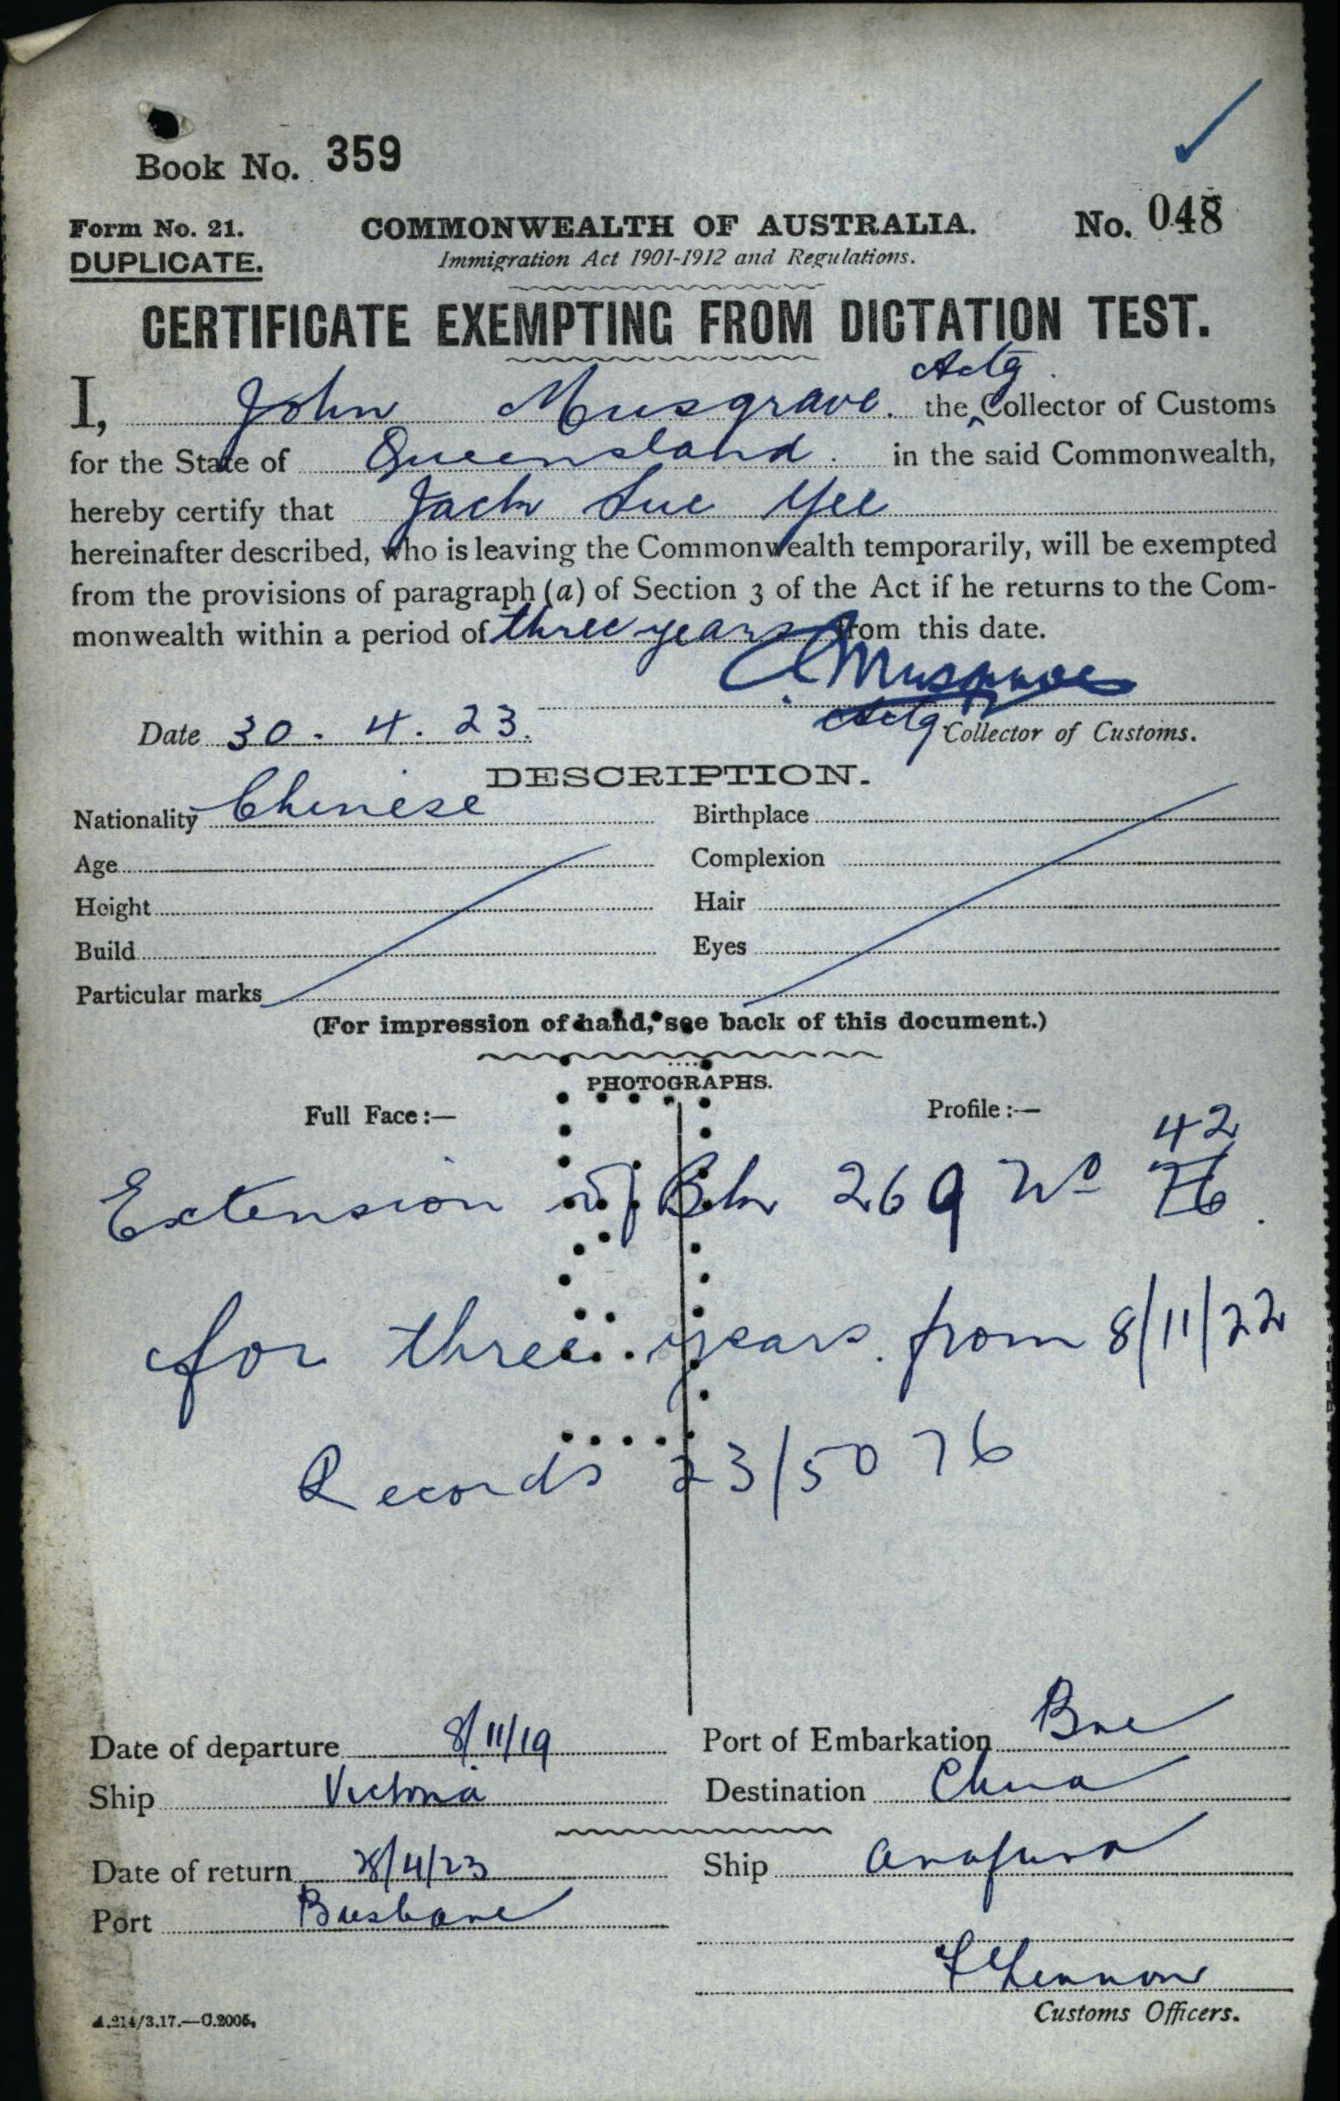 Book No. 359
Form No. 21. COMMONWEALTH OF AUSTRALIA. No. 048
DUPLICATE. Immigration Act 1901-1912 and Regulations.
CERTIFICATE EXEMPTING FROM DICTATION TEST.
Actg
I, John Musgrave. the Collector of Customs
for the State of Queensland. in the said Commonwealth,
hereby certify that Jack Sue Yee
hereinafter described, who is leaving the Commonwealth temporarily, will be exempted
from the provisions of paragraph (a) of Section 3 of the Act if he returns to the Com-
monwealth within a period of three years from this date.
Musgrave
Date 30. 4. 23. Actg Collector of Customs.
DESCRIPTION.
Nationality Chinese Birthplace
Age Complexion
Height Hair
Build Eyes
Particular marks
(For impression of hand, see back of this document.)
PHOTOGRAPHS.
Full Face:— Profile:—
42
Extension of Bk 269 No 76.
for three years from 8/11/22
Records 23/5076
Date of departure 8/11/19 Port of Embarkation Bne
Ship Victoria Destination China
Date of return 28/4/23 Ship Arafura
Port Brisbane
Lennon
Customs Officers.
A.214/3.17.—C.2005.